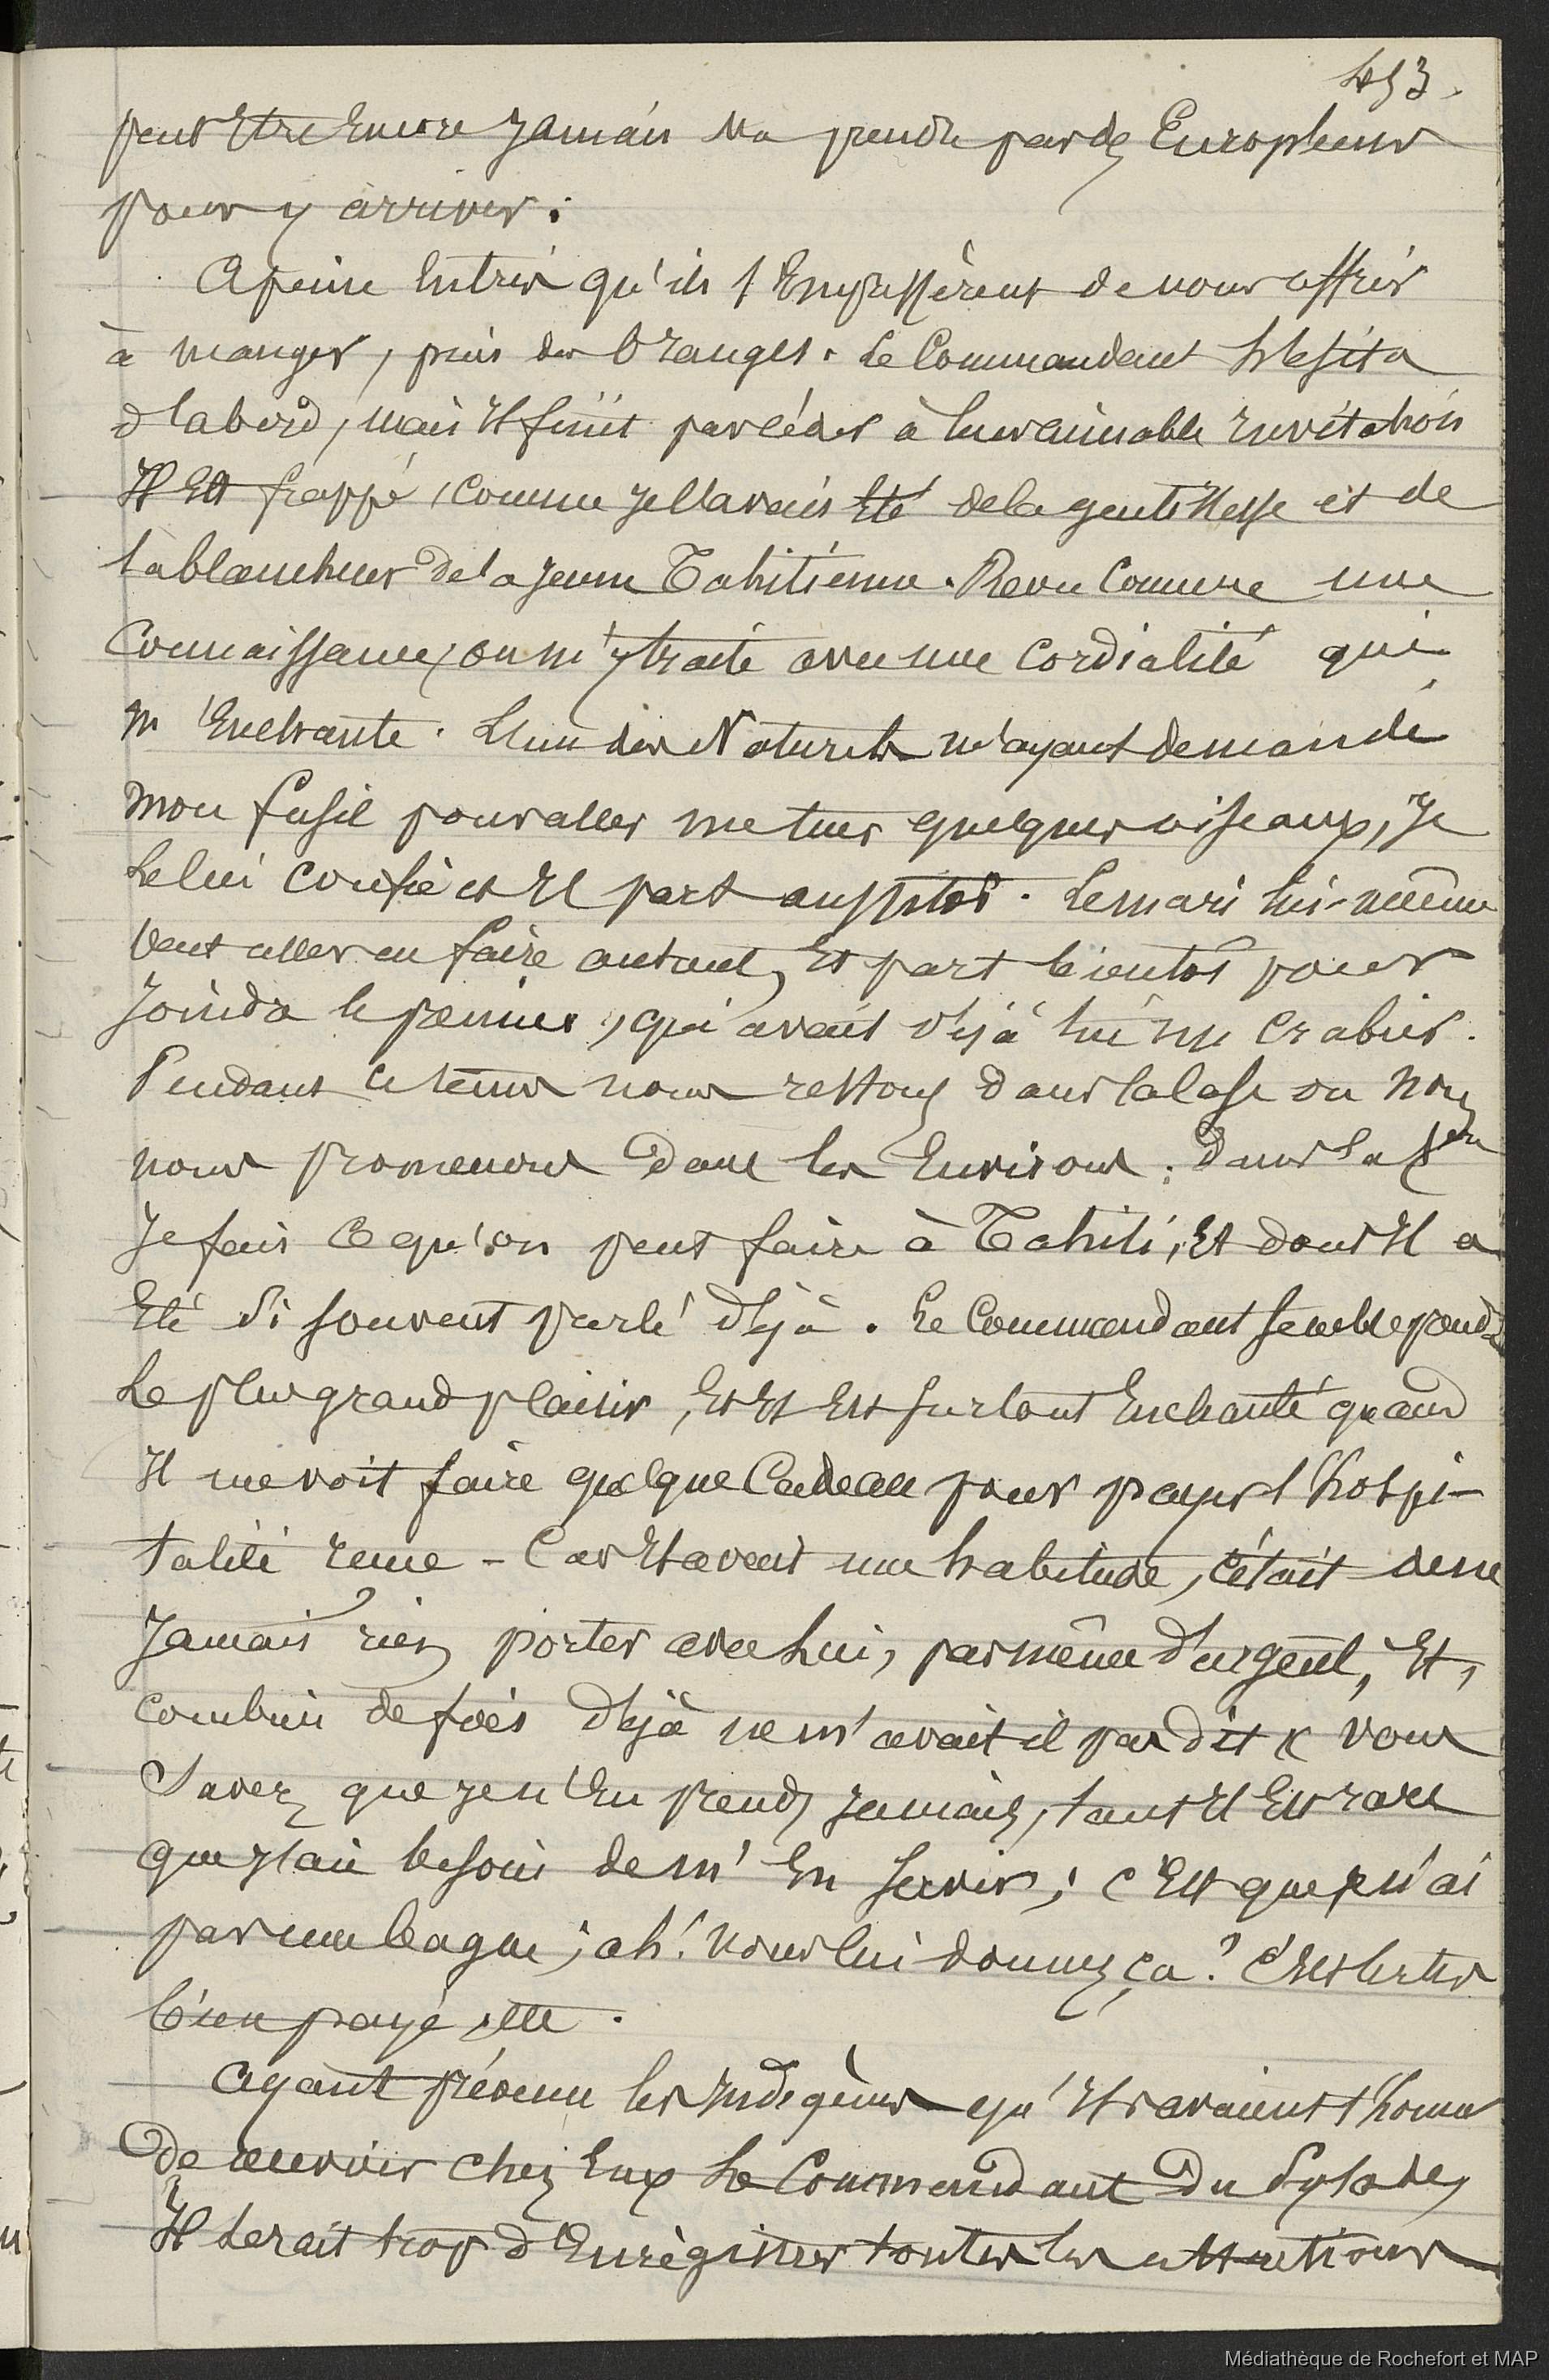 453.
peut être encore jamais vu prendre par des Européens
pour y arriver.
A peine entrés qu'ils s'empressèrent de nous offrir
à manger, puis des oranges. Le Commandant hésita
d'abord, mais il finit par céder à leur aimable invitation
Il est frappé, comme je l'avais été de la gentillesse et de
la blancheur de la jeune Tahitienne. Revu comme une
connaissance, on m'y traite avec une cordialité qui
m'enchante. L'un des Naturels m'ayant demandé
mon fusil pour aller me tuer quelques oiseaux, je
le lui confie et il part aussitôt. Le mari lui-même
veut aller en faire autant, et part bientôt pour
joindre le premier, qui avait déjà tué un crabier.
Pendant ce temps nous restons dans la case ou nous
nous promenons dans les environs. dans la
Je fais ce qu'on peut faire à Tahiti, et dont il a
été si souvent parlé déjà. Le Commandant semble prendre
le plus grand plaisir, et il est surtout enchanté quand
il me voit faire quelque cadeau pour payer l'hospi-
talité reçue - Car il avait une habitude, c'était de ne
jamais rien porter avec lui, pas même d'argent, et,
combien de fois déjà ne m'avait il pas dit « vous
savez que je n'en prends jamais, tant il est rare
que j'aie besoin de m'en servir; c'est que je n'ai
pas une bague; ah! vous lui donnez ça? c'est certes
bien payé, elle.
Ayant prévenu les indigènes qu'ils avaient l'honneur
de recevoir chez eux le Commandant du Pylade,
Il serait trop d'enregistrer toutes les attentions